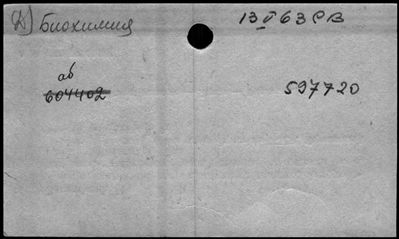 Д) Биохимия 13 V 63 РВ
аб
604402 597720